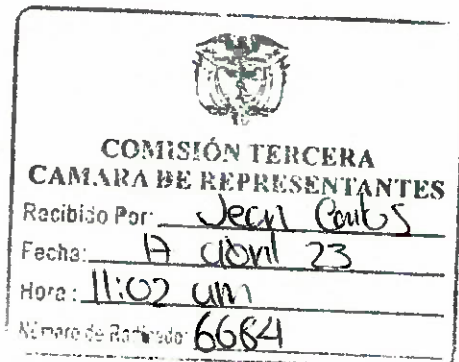 COMISIÓN TERCERA
CAMARA DE REPRESENTANTES
Recibido Por: Jean Carlos
Fecha: 17 abril 23
Hora: 11:02 am
Número de Radicado: 6684